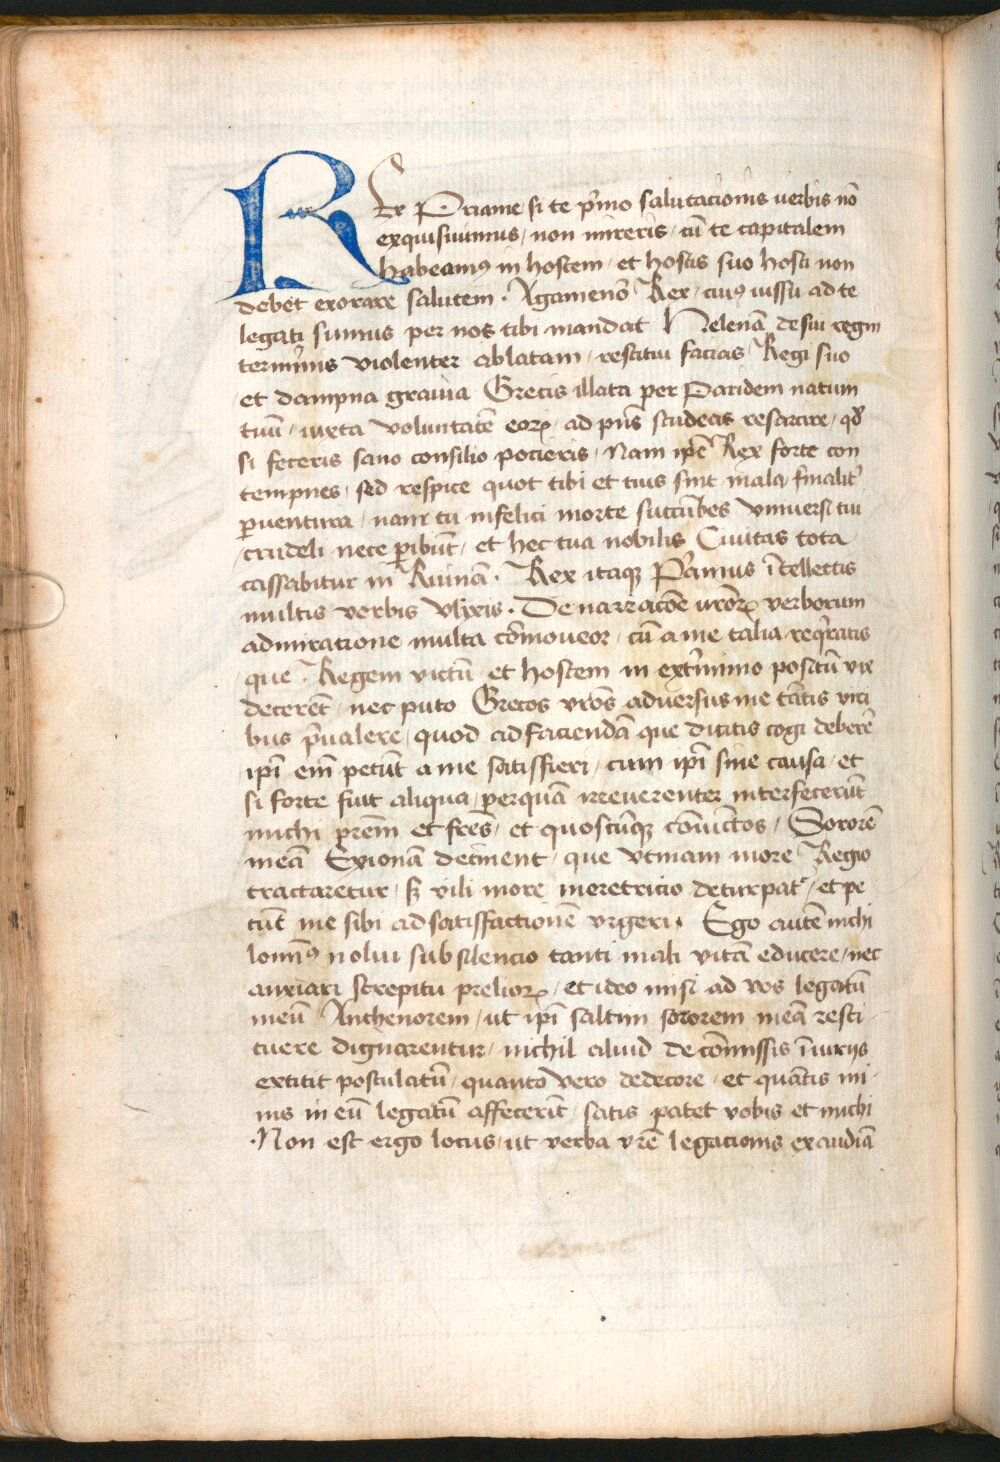 REx Priame si te p̾mo salutacionis uerbis nõ
exquisiuimus / non mireris / cũ te capitalem
habeamꝰ in hostem / et hostis suo hosti non
debet exorare salutem · Agamenõ Rex / cuiꝰ iussu ad te
legati sumus per nos tibi mandat Helenã de sui regni
terminis violenter ablatam / restitui facias Regi suo
et dampna grauia Grecis illata per Paridem natum
tuũ / iuxta voluntatẽ eoꝝ / ad pñs studeas resarcire / qđ
si feceris sano consilio pocieris / Nam ip̃e Rex forte con
tempnes / sed respice quot tibi et tuis sint mala finalit̾
ꝑuentura / nam tu infelici morte succũbes vniuersi tui
crudeli nece ꝑibũt / et hec tua nobilis Ciuitas tota
cassabitur in Ruinã · Rex itaqꝫ P̾amus ĩtellectis
multis verbis Vlixis · De narracõe vroꝝ verborum
admiratione multa cõmoueor / cũ a me talia req̾ratis
que Regem victũ et hostem in ext̾mimo positũ vix
decerẽt / nec puto Grecos vrõs aduersus me tãtis viri
bus p̾ualere / quod ad faciendã que dicitis cogi deberẽ
ip̃i em̃ petũt a me satisfieri / cum ip̃i sine causa / et
si forte fuit aliqua / perquã irreuerenter interfecerũt
michi prẽm et frẽs / et quoscũqꝫ cõuictos / Sororẽ
meã Exionã detinent / que vtinam more Regio
tractaretur / sꝫ vili more meretricio deturpat̾ / et pe
tũt me sibi ad satisfactionẽ vrgeri · Ego autẽ nichi
lominꝰ nolui sub silencio tanti mali vitã educere / nec
anxiari strepitu prelioꝝ / et ideo misi ad vos legatũ
meũ Anthenorem / ut ip̃i saltim sororem meã resti
tuere dignarentur / nichil aliud de cõmissis ĩiurijs
extitit postulatũ / quanto vero dedecore / et quãtis mi
nis in eũ legatũ affecerĩt / satis patet vobis et michi
· Non est ergo locus / ut verba vrẽ legacionis exaudiã